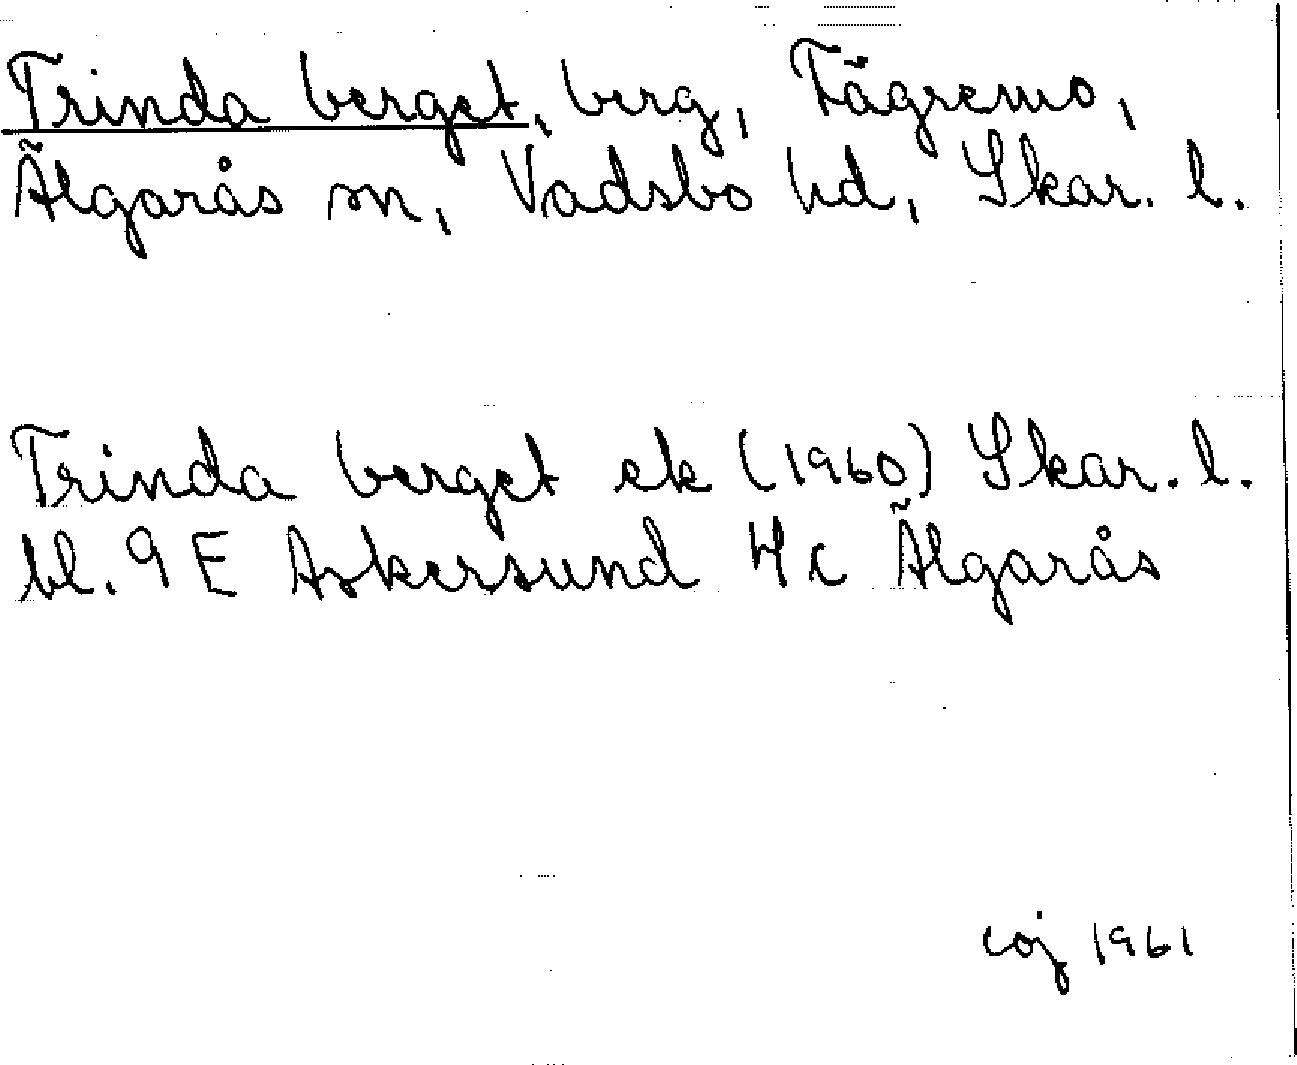 Trinda berget, berg, Fägremo,
Älgarås sn, Vadsbo hd, Skar. l.
Trinda berget ek (1960) Skar. l.
bl. 9 E Askersund 4 c Älgarås
coj 1961